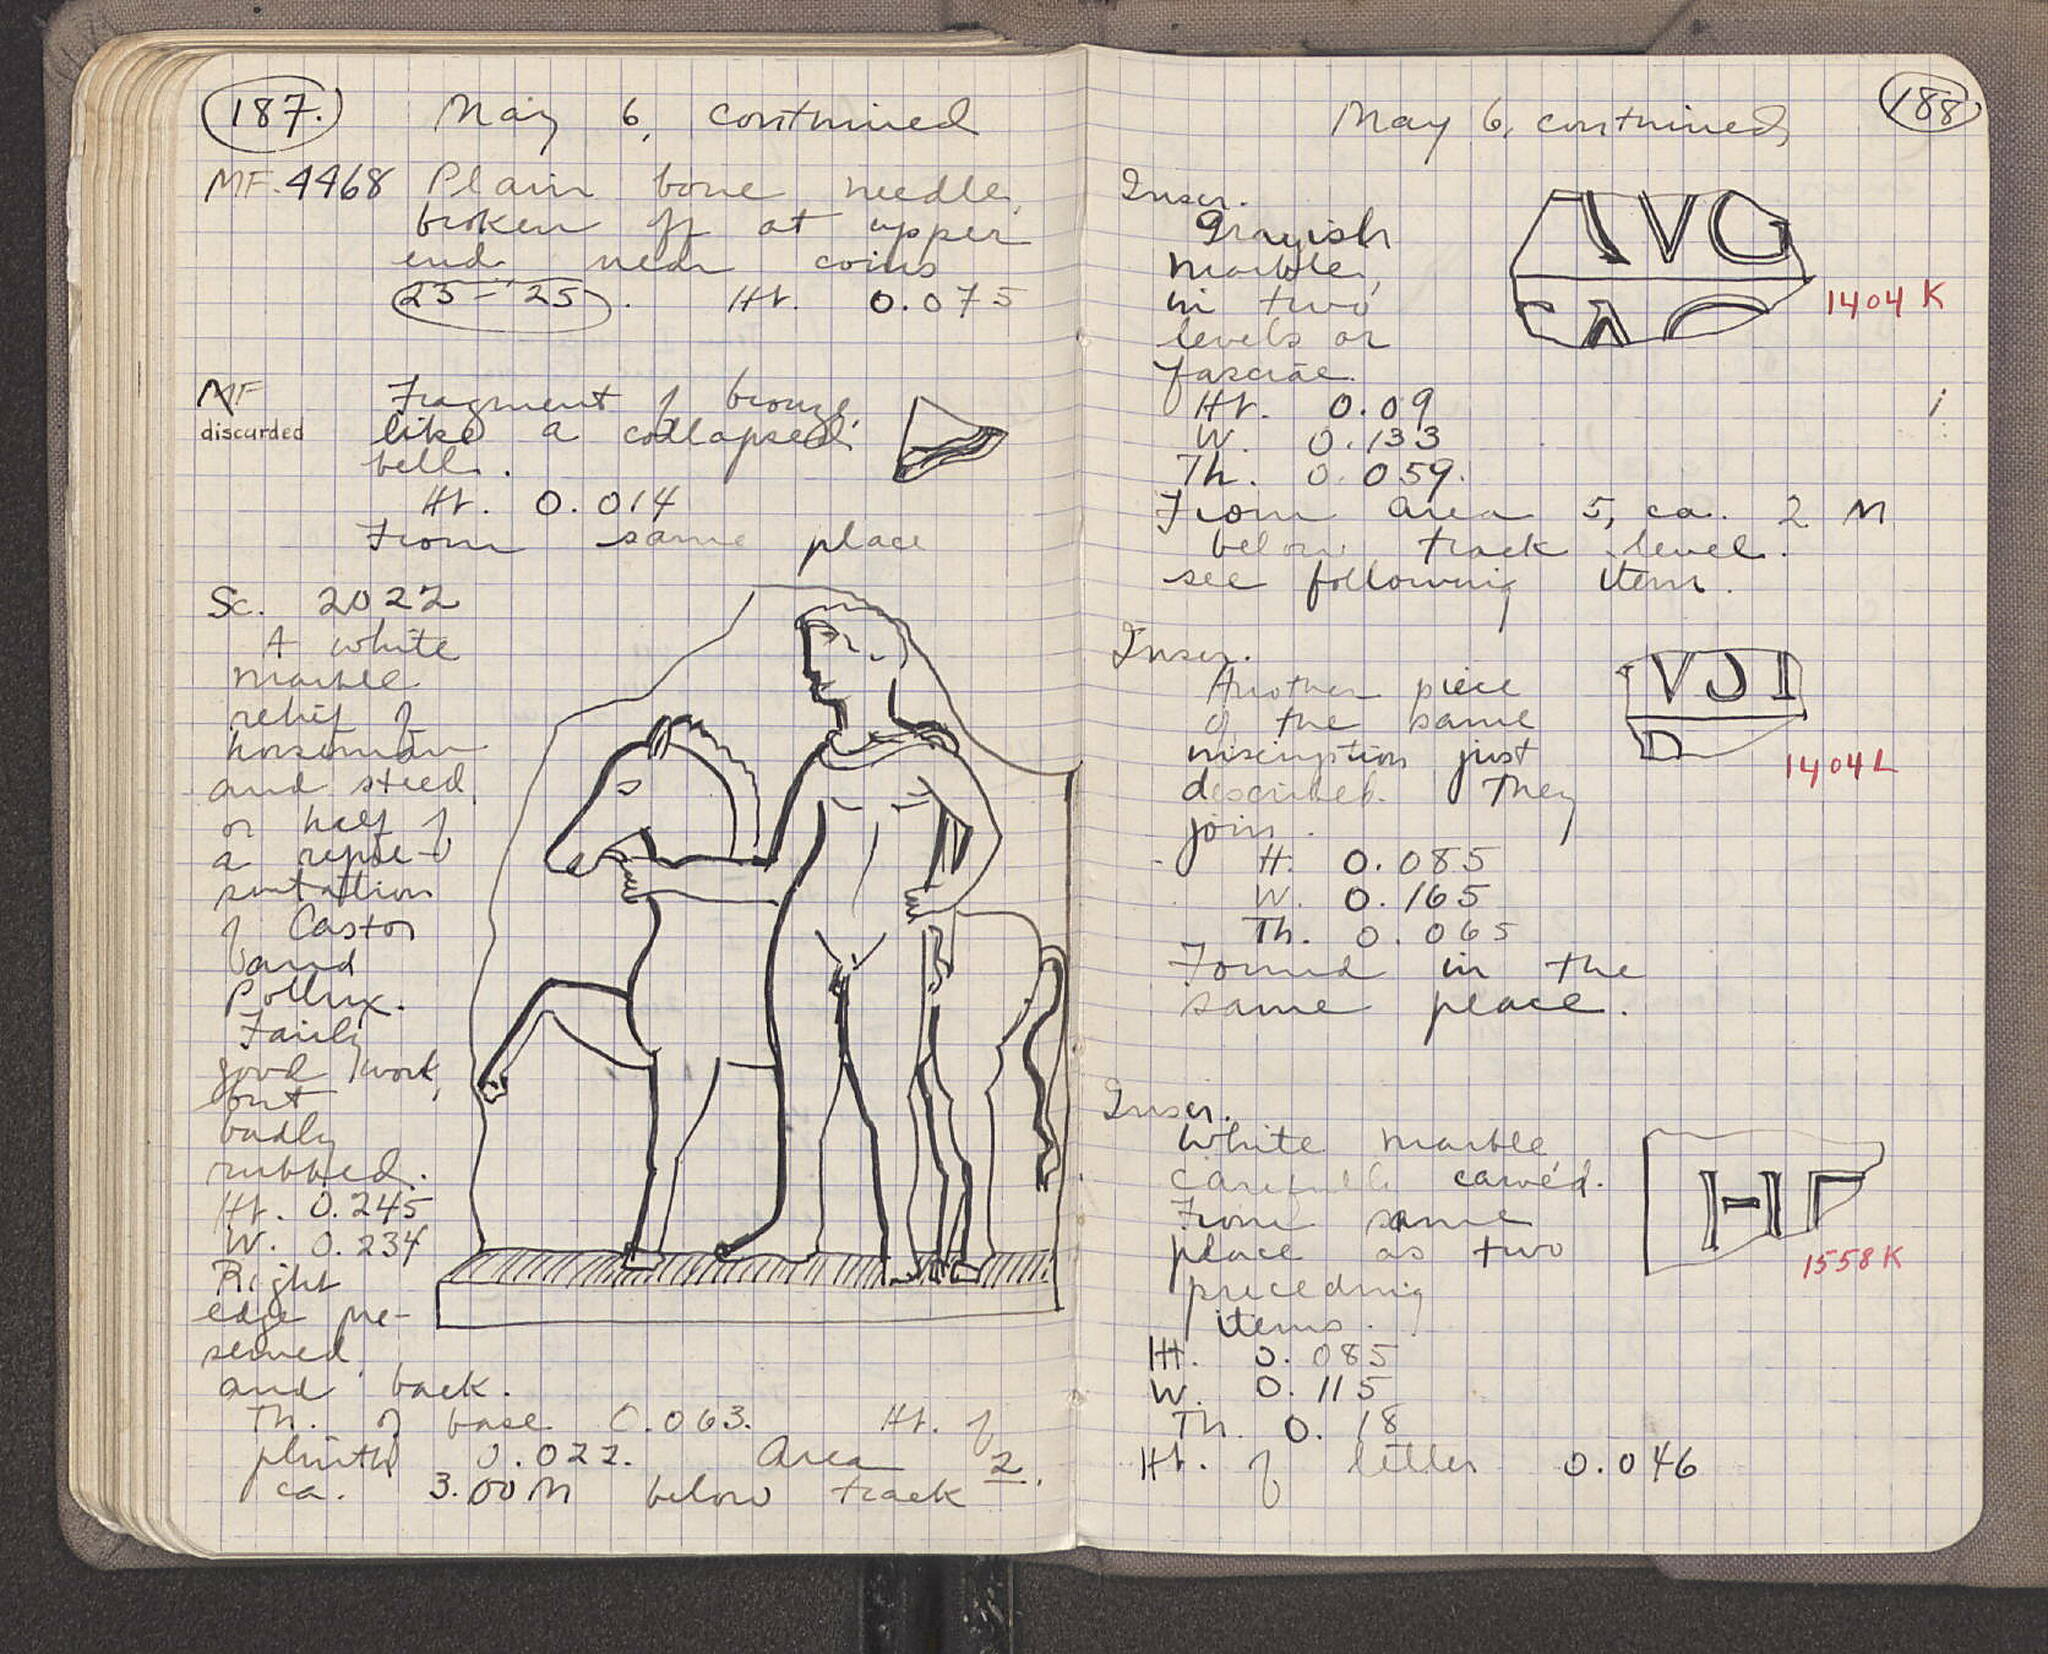 187.
May 6, continued
MF. 4468 Plain bone needle,
broken off at upper
end, near coins
23 – 25. Ht. 0.075
MF
discarded
Fragment of bronze,
like a collapsed
bell.
Ht. 0.014
From same place
Sc. 2022
A white
marble
relief of
horseman
and steed,
or half of
a repre-
sentation
of Castor
and
Pollux.
Fairly
good work,
but
badly
rubbed.
Ht. 0.245
W. 0.234
Right
edge pre-
served
and back.
Th. of base 0.063. Ht. of
plinth 0.022. Area 2.
ca. 3.00 M below track
188
May 6, continued
Inscr.
Grayish
marble,
in two
levels or
fasciae.
VG
1404 K
Ht. 0.09
W. 0.133
Th. 0.059.
From Area 5, ca. 2 M
below track level.
see following item.
Inscr.
Another piece
of the same
inscription just
described. They
join.
VJI
D
1404 L
H. 0.085
W. 0.165
Th. 0.065
Found in the
same place.
Inscr.
White marble
carefully carved.
From same
place as two
preceding
items.
HΓ
1558 K
Ht. 0.085
W. 0.115
Th. 0.18
Ht. of letters 0.046